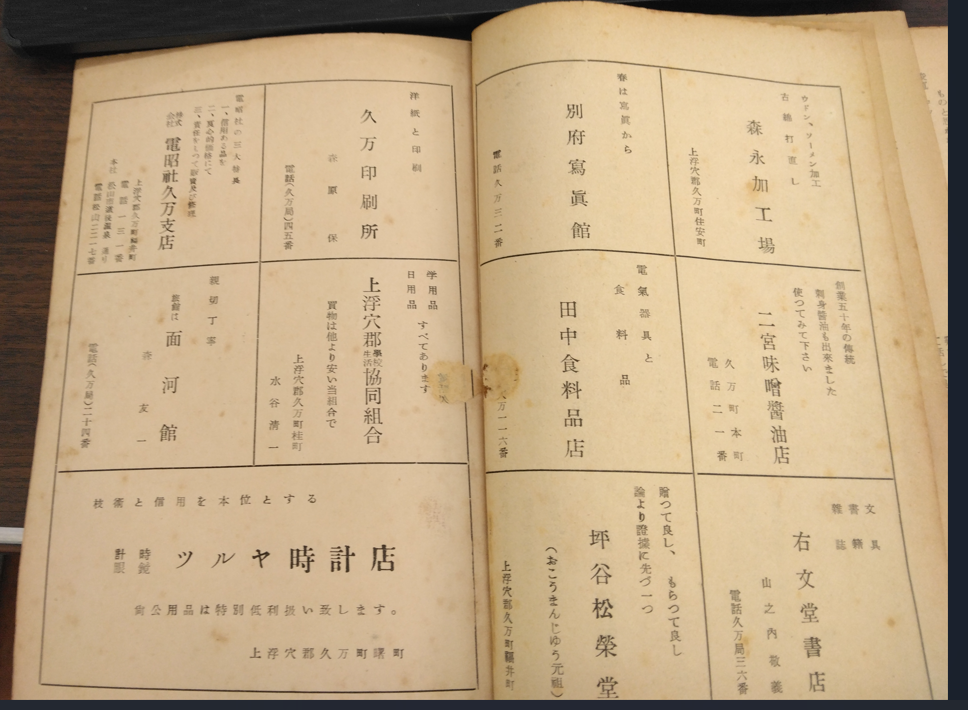 ウドン、ソーメン加工
古綿打直し
森永加工場
上浮穴郡久万町住安町
春は寫眞から
別府寫眞館
電話久万三二番
創業五十年の傳統
刺身醬油も出來ました
使つてみて下さい
二宮味噌醬油店
久万町本町
電話二一番
電氣器具と
食料品
田中食料品店
万一一六番
文具
書籍
雜誌
右文堂書店
山之内敬義
電話久万局三六番
贈つて良し、もらつて良し
論より證據に先づ一つ
坪谷松榮堂
(おこうまんじゆう元祖)
上浮穴郡久万町
洋紙と印刷
久万印刷所
森原保
電話(久万局)四五番
電昭社の三大特長
一、信用ある品を
株式会社
電昭社久万支店
本社
学用品
日用品
すべてあります
上浮穴郡學校生活協同組合
買物は他より安い当組合で
上浮穴郡久万町桂町
水谷清一
親切丁寧
旅館は
面河館
森友一
電話(久万局)二十四番
技術と信用を本位とする
時計
眼鏡
ツルヤ時計店
尙公用品は特別低利扱い致します。
上浮穴郡久万町曙町